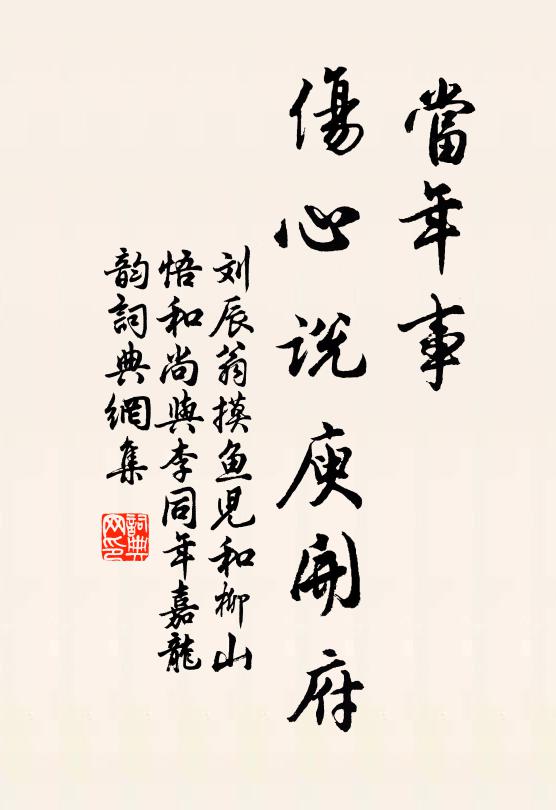 當年事
傷心說庾開府
刘辰翁摸鱼児和柳山
悟和尚與李同年嘉龍
韵詞典網集
詞典
网印